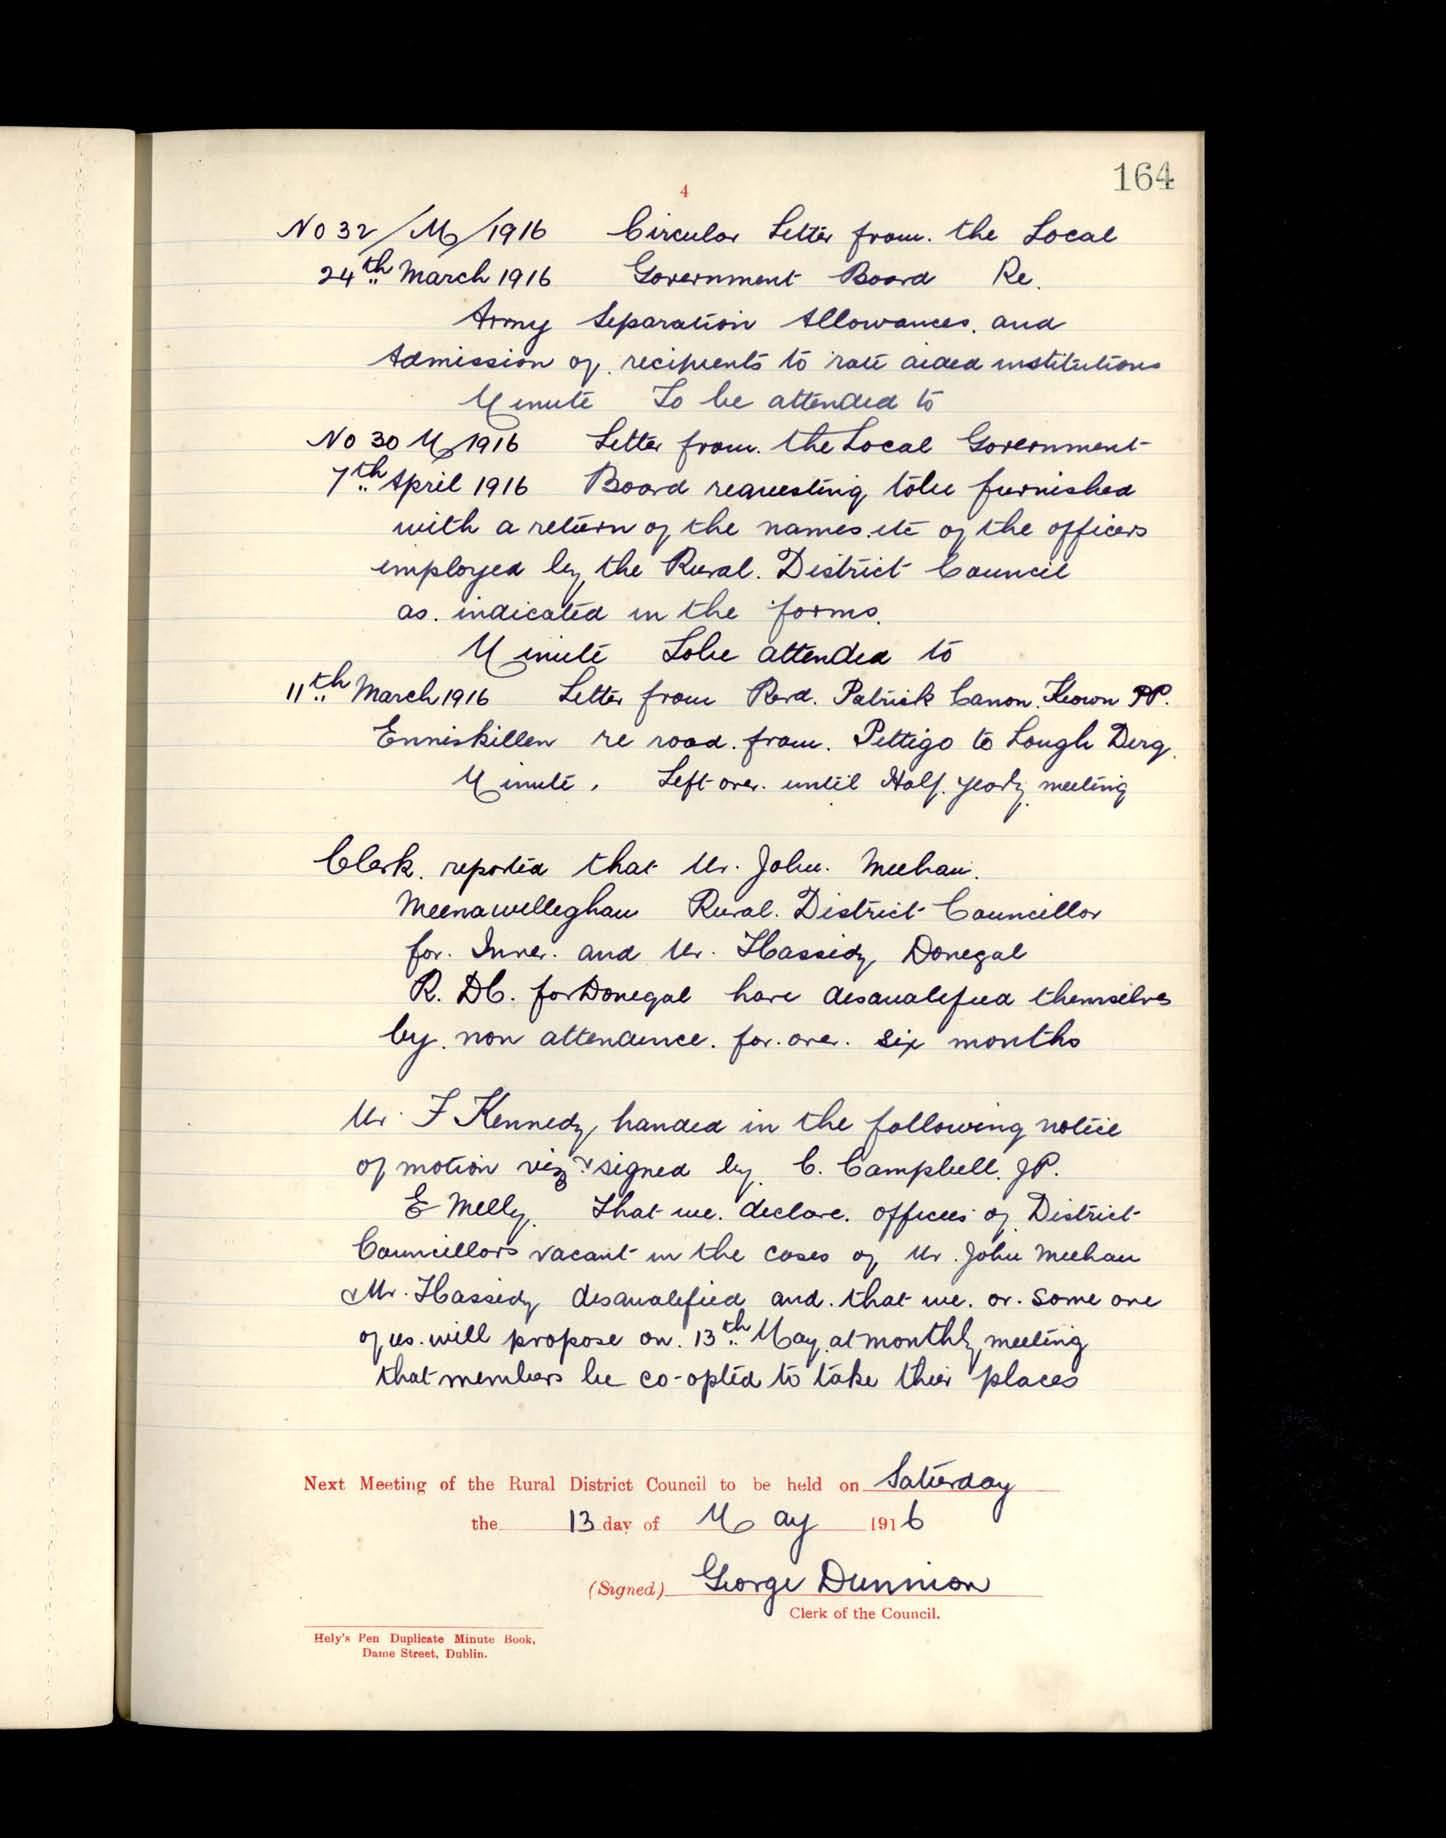 164
4
No 32/M/1916 Circular Letter from the Local
24th March 1916 Government Board Re.
Army Separation Allowances, and
Admission of recipients to rate aided institutions
Minute To be attended to
No 30 M/1916 Letter from the Local Government
7th April 1916 Board requesting to be furnished
with a return of the names etc of the officers
employed by the Rural District Council
as indicated in the forms.
Minute To be attended to
11th March 1916 Letter from Revd. Patrick Canon Keown PP.
Enniskillen re road from Pettigo to Lough Derg.
Minute. Left over until Half yearly meeting
Clerk reported that Mr. John Meehan.
Meenawilleghan Rural District Councillor
for Inver and Mr. Hassidy Donegal
R. D.C. for Donegal have disqualified themselves
by non attendance for over six months
Mr F Kennedy handed in the following notice
of motion viz & signed by C. Campbell JP.
E Melly. That we declare offices of District
Councillors vacant in the cases of Mr. John Meehan
& Mr. Hassidy disqualified and that we or some one
of us will propose on 13th May at monthly meeting
that members be co-opted to take their places
Next Meeting of the Rural District Council to be held on Saturday
the 13 day of May 1916
(Signed) George Dunnion
Clerk of the Council.
Hely's Pen Duplicate Minute Book,
Dame Street, Dublin.